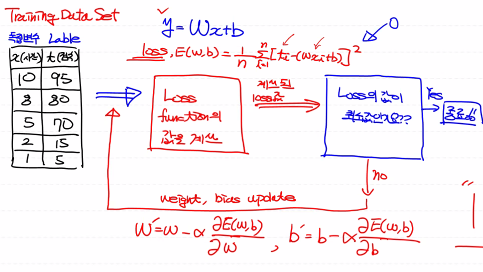 Training Data Set
독립변수 Lable
x(시간) t(점수)
10 95
8 80
5 70
2 15
1 5
y = Wx+b
loss, E(w,b) = 1/n Σ [ti-(wxi+b)]²
n
i=1
0
Loss function의 값을 계산
계산된 loss값
Loss의 값이
최솟값인가요??
Yes
종료
no
weight, bias update
W' = w - α ∂E(w,b)/∂w , b' = b - α ∂E(w,b)/∂b